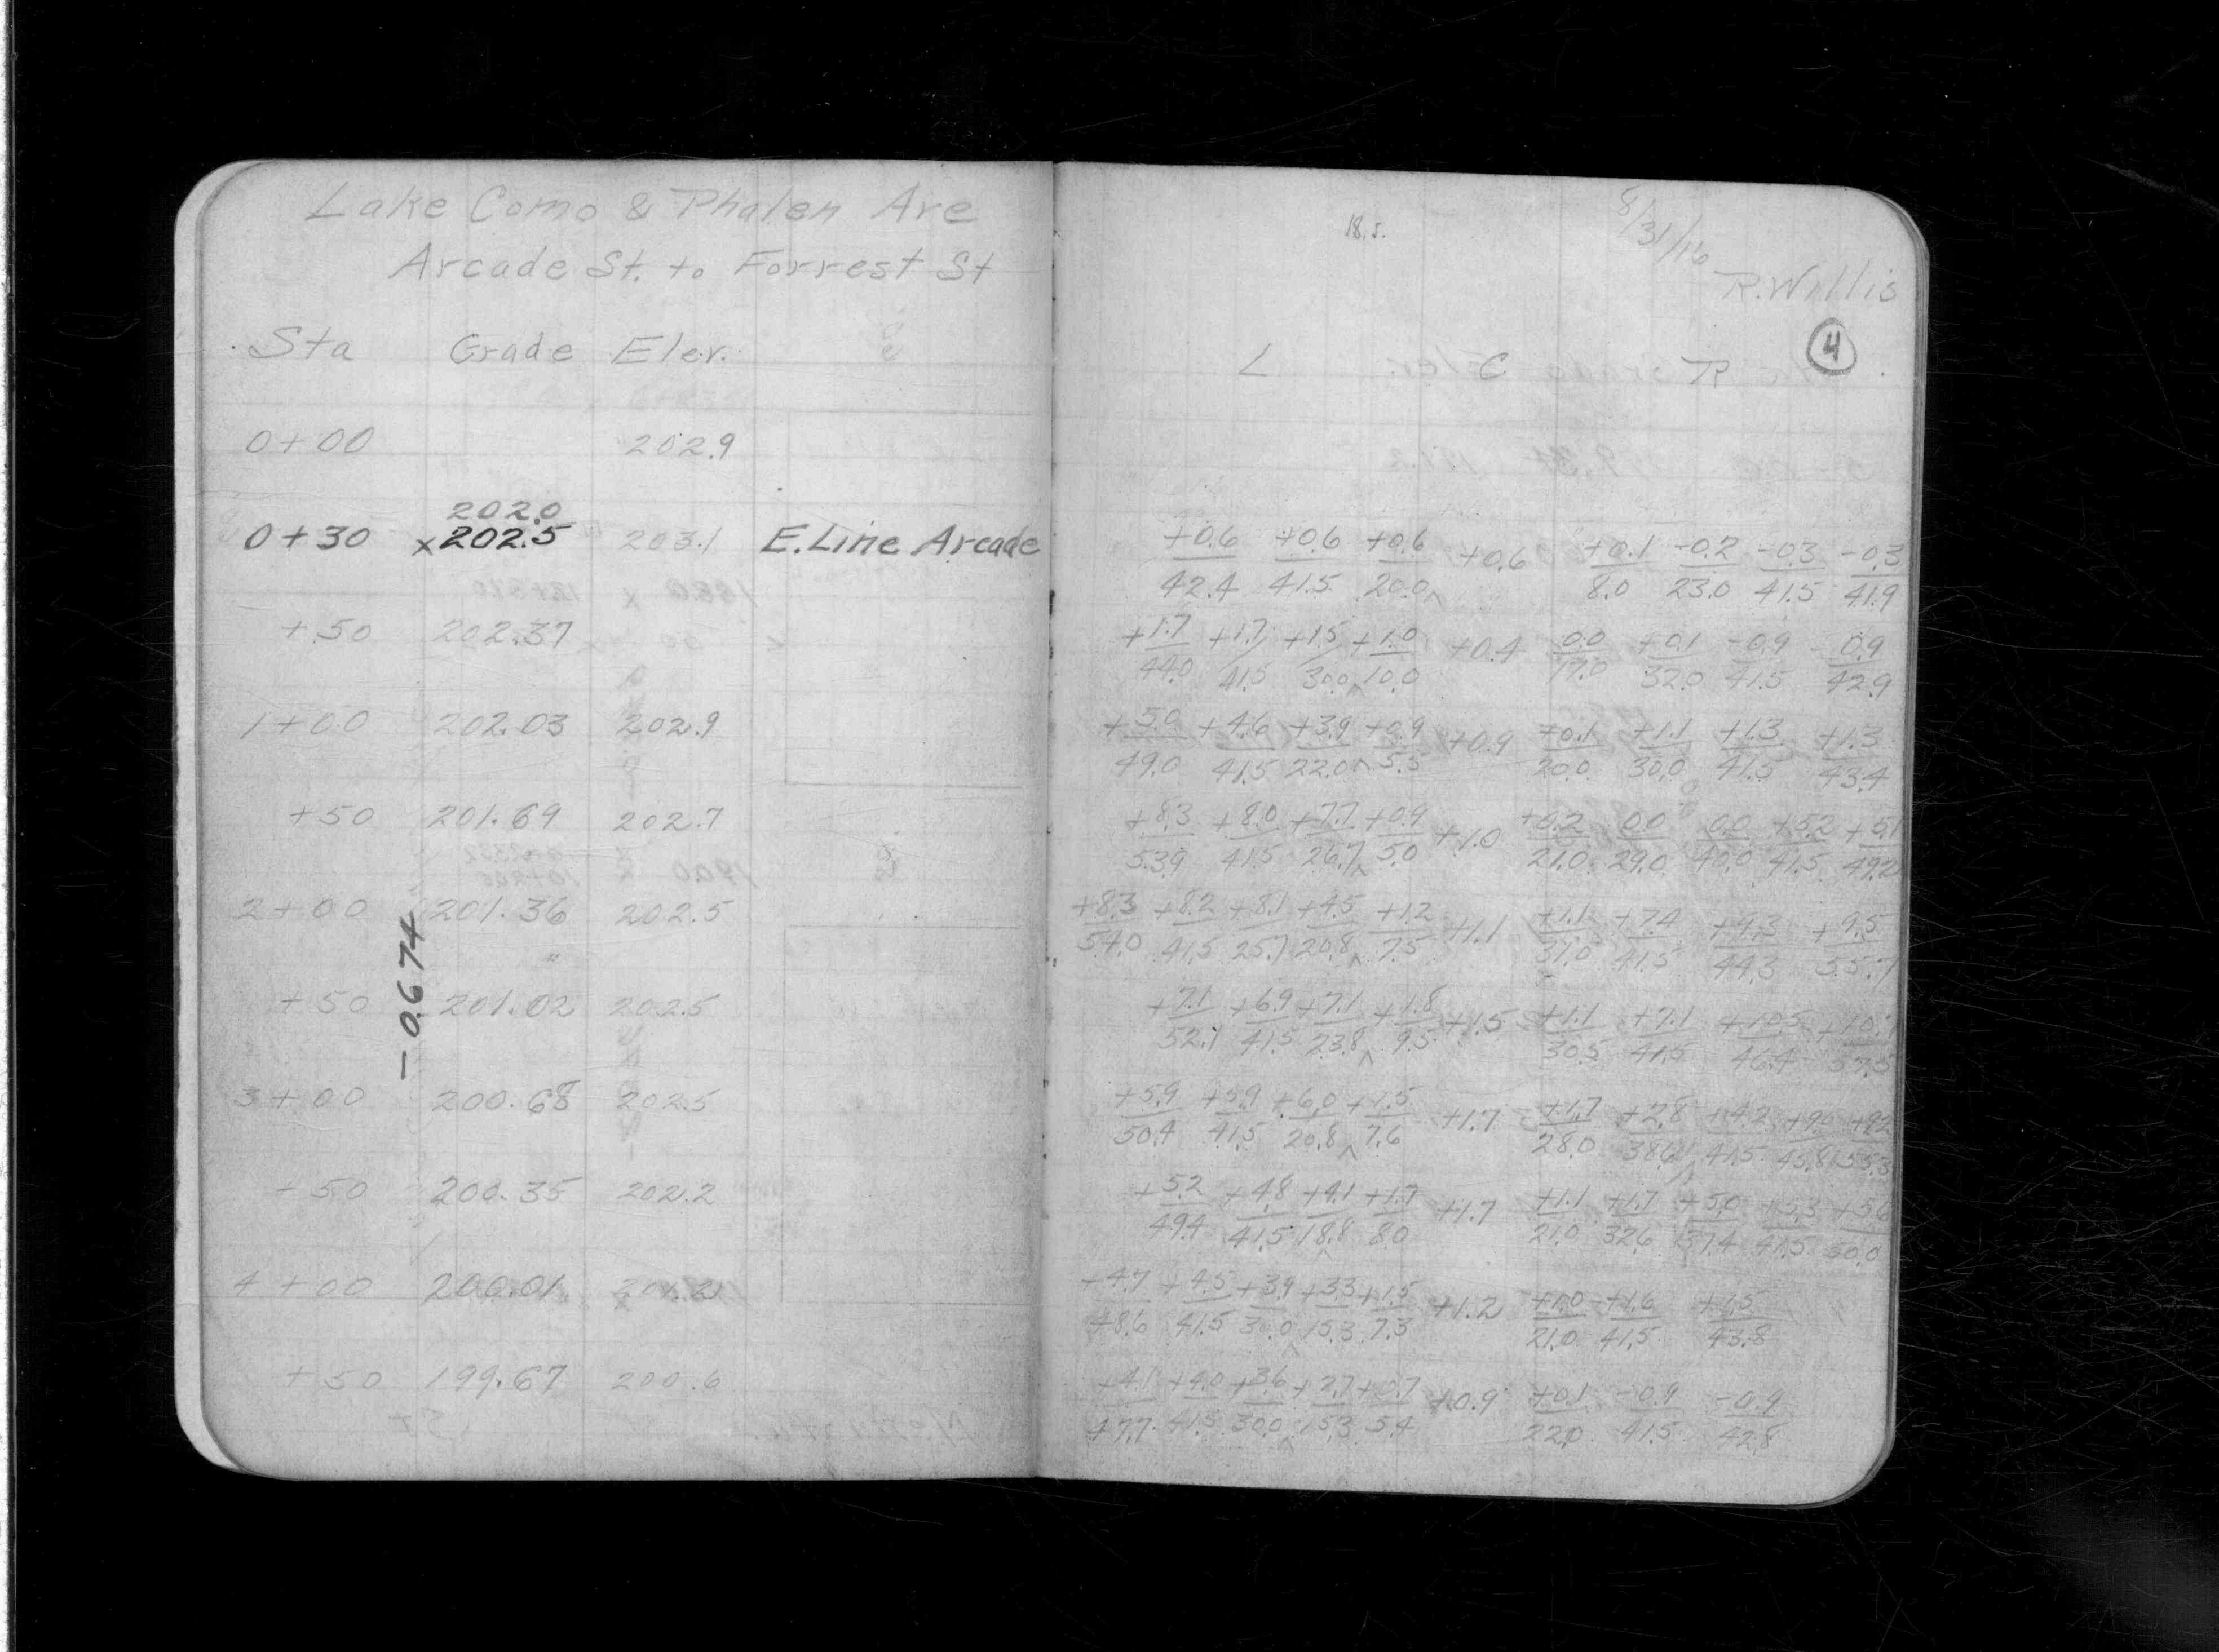 Lake Como & Phalen Ave
Arcade St. to Forrest St
Sta Grade Elev.
0+00 202.9
202.0
0+30 x202.5 203.1 E.Line Arcade
+50 202.37
1+00 202.03 202.9
+50 201.69 202.7
2+00 201.36 202.5
-0.674
+50 201.02 202.5
3+00 200.68 202.5
+50 200.35 202.2
4+00 200.01 201.21
+50 199.67 200.6
18.5.
8/31/16
R.Willis
4
L C R
+0.6 +0.6 +0.6 +0.6 +0.1 -0.2 -0.3 -0.3
42.4 41.5 20.0 8.0 23.0 41.5 41.9
+1.7 +1.7 +1.5 +1.0 +0.4 0.0 +0.1 -0.9 -0.9
44.0 41.5 30.0 10.0 17.0 32.0 41.5 42.9
+5.0 +4.6 +3.9 +0.9 +0.9 +0.1 +1.1 +1.3 +1.3
49.0 41.5 22.0 5.5 20.0 30.0 41.5 43.4
+8.3 +8.0 +7.7 +0.9 +1.0 +0.2 0.0 0.0 +5.2 +5.1
53.9 41.5 26.7 5.0 21.0 29.0 40.0 41.5 49.2
+8.3 +8.2 +8.1 +4.5 +1.2 +1.1 +1.1 +7.4 +9.3 +9.5
54.0 41.5 25.1 20.8 7.5 31.0 41.5 44.3 55.7
+7.1 +6.9 +7.1 +1.8 +1.5 +1.1 +7.1 +10.5
52.1 41.5 23.8 9.5 30.5 41.5 46.4 57.5
+5.9 +5.9 +6.0 +1.5 +1.7 +1.7 +2.8 +4.2 +9.0 +9.2
50.4 41.5 20.8 7.6 28.0 38.6 41.5 45.8 55.3
+5.2 +4.8 +4.1 +1.7 +1.7 +1.1 +1.7 +5.0 +5.3 +5.6
49.4 41.5 18.8 8.0 21.0 32.6 37.4 41.5 50.0
+4.7 +4.5 +3.9 +3.3 +1.5 +1.2 +1.0 +1.6 +1.5
48.6 41.5 30.0 15.3 7.3 21.0 41.5 43.8
+4.1 +4.0 +3.6 +2.7 +0.7 +0.9 +0.1 -0.9 -0.9
47.7 41.5 30.0 15.3 5.4 22.0 41.5 42.8